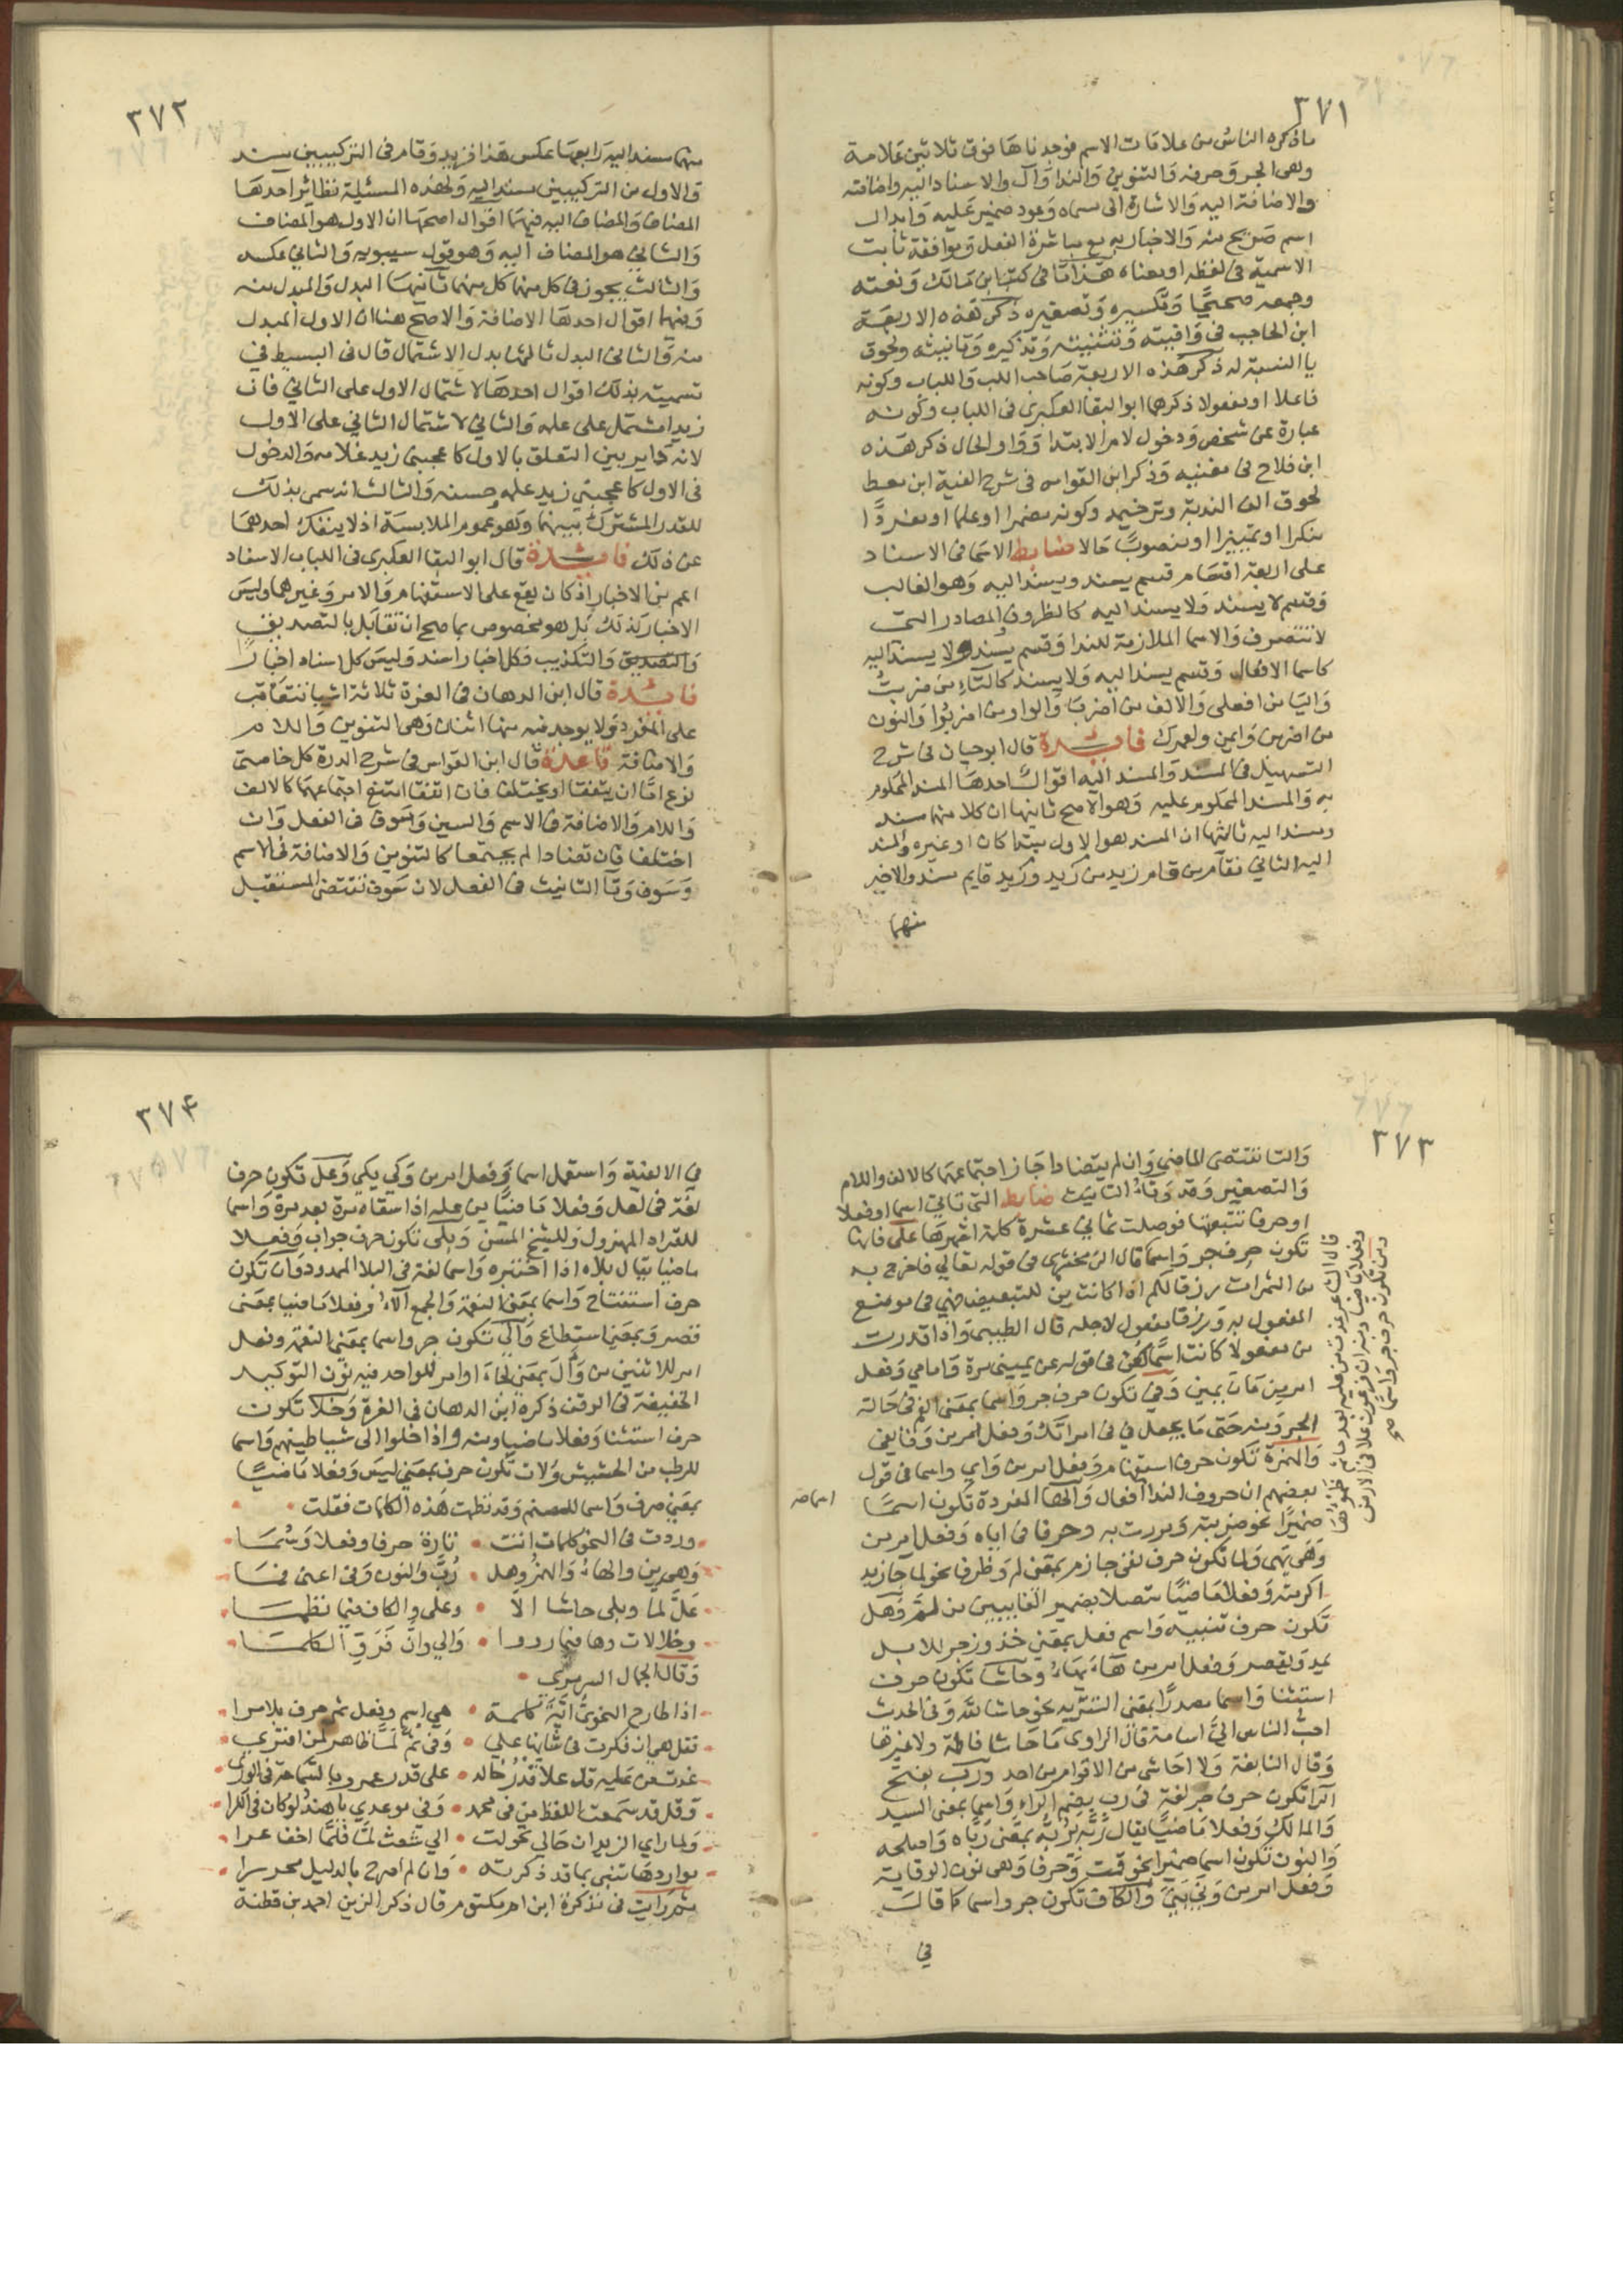 ٣٧١
ما ذكره الناس من علامات الاسم فوجدناها فوق ثلاثين علامة
وهى الجر وحرفه والتنوين والندا وال والاسناد اليه واضافته
والاضافة اليه والاشارة الى مسماه وعود ضمير عليه وابدال
اسم صريح منه والاخبار به مع مباشرة الفعل وموافقة ثابت
الاسمية فى لفظه او معناه هذا ما فى كتب ابن مالك ونعته
وجمعه مصححا وتكسيره وتصغيره ذكر هذه الاربعة
ابن الحاجب فى وافيته وتثنيته وتذكيره وتانيثه ولحوق
يا النسبة له ذكر هذه الاربعة صاحب اللب واللباب وكونه
فاعلا او مفعولا ذكرهما ابو البقا العكبرى فى اللباب وكونه
عبارة عن شخص ودخول لام الابتدا وواو الحال ذكر هذه
ابن فلاح فى مغنيه وذكر ابن القواس فى شرح الفية ابن معط
لحوق الف الندبة وترخيمه وكونه مضمرا او علما او مفردا
منكرا او تمييزا او منصوبا حالا ضابط الاسما فى الاسناد
على اربعة اقسام قسم يسند ويسند اليه وهو الغالب
وقسم لا يسند ولا يسند اليه كالظروف والمصادر التى
لا تتصرف والاسما الملازمة للندا وقسم يسند ولا يسند اليه
كاسما الافعال وقسم يسند اليه ولا يسند كالتاء من ضربت
واليا من افعلى والالف من اضربا والواو من اضربوا والنون
من اضربن وايمن ولعمرك فائدة قال ابو حيان فى شرح
التسهيل فى المسند والمسند اليه اقوال احدها المسند المحكوم
به والمسند المحكوم عليه وهو الاصح ثانيها ان كلا منهما مسند
ومسند اليه ثالثها ان المسند هو الاول مبتدا كان او غيره والمسند
اليه الثاني فقام من قام زيد من زيد وزيد قايم مسند والاخير
منهما
٣٧٢
منهما مسند اليه رابعها عكس هذا فزيد وقام فى التركيبين مسند
والاول من التركيبين مسند اليه ولهذه المسئلة نظائر احدها
المضاف والمضاف اليه فيهما اقوال اصحها ان الاول هو المضاف
والثاني هو المضاف اليه وهو قول سيبويه والثاني عكسه
والثالث يجوز فى كل منهما كل منهما ثانيها البدل والمبدل منه
وفيهما اقوال احدها الاضافة والاصح هنا ان الاول المبدل
منه والثانى البدل ثالثها بدل الاشتمال قال فى البسيط في
تسميته بذلك اقوال احدها لاشتمال الاول على الثاني فان
زيدا مشتمل على علمه والثاني لاشتمال الثاني على الاول
لانه دائر بين التعلق بالاول كاعجبنى زيد غلامه والدخول
فى الاول كاعجبني زيد علمه وحسنه والثالث انه سمى بذلك
للقدر المشترك بينهما وهو عموم الملابسة اذ لا ينفك احدهما
عن ذلك فائدة قال ابو البقا العكبرى فى اللباب الاسناد
اعم من الاخبار اذ كان يقع على الاستفهام والامر وغيرهما وليس
الاخبار كذلك بل هو مخصوص بما صح ان تقابل بالتصديق
والتصديق والتكذيب فكل اخبار اسناد وليس كل اسناد اخبارا
فائدة قال ابن الدهان فى الغرة ثلاثة اشيا تتعاقب
على المفرد ولا يوجد فيه منها اثنان وهى التنوين واللام
والاضافة قاعدة قال ابن القواس فى شرح الدرة كل خاصتى
نوع اما ان يتفقا او يختلفا فان اتفقا امتنع اجتماعهما كالالف
واللام والاضافة فى الاسم والسين وسوف فى الفعل وان
اختلفا فان تضادا لم يجتمعا كالتنوين والاضافة فى الاسم
وسوف وتا التانيث فى الفعل لان سوف تقتضى المستقبل
٣٧٣
والتا تقتضى الماضي وان لم يتضادا جاز اجتماعهما كالالف واللام
والتصغير وقد وتاء التانيث ضابط التى تاتي اسما وفعلا
او حرفا تتبعتها فوصلت ثماني عشرة كلمة اشهرها على فانها
تكون حرف جر واسما قال الزمخشرى فى قوله تعالى فاخرج به
من الثمرات رزقا لكم اذا كانت من للتبعيض فهي فى موضع
المفعول به ورزقا مفعول لاجله قال الطيبى واذا قدرت
من مفعولا كانت اسما كعن فى قوله عن يمينى مرة وامامي وفعل
امر من مان يمين وفي تكون حرف جر واسما بمعنى الفم فى حالة
الجر ومنه حتى ما يجعل في في امراتك وفعل امر من وفا يفى
والهمزة تكون حرف استفهام وفعل امر من واى واسما فى قول
بعضهم ان حروف الندا افعال والها المفردة تكون اسما
ضميرا نحو ضربته ومررت به وحرفا فى اياه وفعل امر من
وهى يهى ولما تكون حرف نفى جازم بمعنى لم وظرفا نحو لما جا زيد
اكرمته وفعلا ماضيا متصلا بضمير الغائبين من لم وهل
تكون حرف تنبيه واسم فعل بمعنى خذ وزجر للابل
يمد ويقصر وفعل امر من هاء يهاء وحاشا تكون حرف
استثنا واسما مصدرا بمعنى التنزيه نحو حاشا لله وفى الحديث
احب الناس الى اسامة قال الراوى ما حاشا فاطمة ولا غيرها
وقال النابغة ولا احاشى من الاقوام من احد ورب بفتح
الرا تكون حرف جر لغة فى رب بضم الراء واسما بمعنى السيد
والمالك وفعلا ماضيا يقال ربه يربه بمعنى رباه واصلحه
والنون تكون اسما ضميرا نحو قمت وحرفا وهى نون الوقاية
وفعل امر من ونى يني والكاف تكون جر واسما كما قال
في
قال الشاعر غدت من عليه بعد ما تم ظمؤها
وفعلا ماضيا ومنه ان فرعون علا فى الارض
ومن تكون حرف جر واسما صح
٣٧٤
في الالفية واستعمل اسما وفعل امر من وكى يكي وعل تكون حرف
لغة فى لعل وفعلا ماضيا من عله اذا سقاه مرة بعد مرة واسما
للقراد المهزول وللشيخ المسن وبلى تكون حرف جواب وفعلا
ماضيا يقال بلاه اذا اختبره واسما لغة فى البلا الممدود والا تكون
حرف استفتاح واسما بمعنى النعمة والجمع آلاء وفعلا ماضيا بمعنى
قصر وبمعنى استطاع والى تكون جر واسما بمعنى النعمة وفعل
امر للاثنين من وأل بمعنى لجأ او امر للواحد فيه نون التوكيد
الخفيفة فى الوقف ذكره ابن الدهان في الغرة وخلا تكون
حرف استثنا وفعلا ماضيا ومنه واذا خلوا الى شياطينهم واسما
للرطب من الحشيش ولات تكون حرف بمعني ليس وفعلا ماضيا
بمعنى صرف واسما للصنم وقد نظمت هذه الكلمات فقلت
وردت فى النحو كلمات اتت تارة حرفا وفعلا وسما
وهى من والهاء والهمز وهل رب والنون وفى اعنى فما
عل لما وبلى حاشا الا وعلى والكاف فيما نظما
وخلا لات وها فيما رووا والى وان فرق الكلما
وقال الجمال السرمرى
اذا طارح النحوى اية كلمة هي اسم وفعل ثم حرف بلا مرا
فقل هى ان فكرت فى شانها على وفى ثم لما ظاهر لمن اقترى
غدت من عليه قل علا قدر خالد على قدر عمرو بالسماحة فى الورى
وقل قد سمعت اللفظ من فى محمد وفي موعدي يا هند لو كان فى الكرا
ولما راى الزيدان حالي تحولت الي شعث لما فلما اخف عرا
مواردها تنبى بما قد ذكرته وان لم اصرح بالدليل محررا
ثم رايت فى تذكرة ابن ام مكتوم قال ذكر الزين احمد بن قطنة